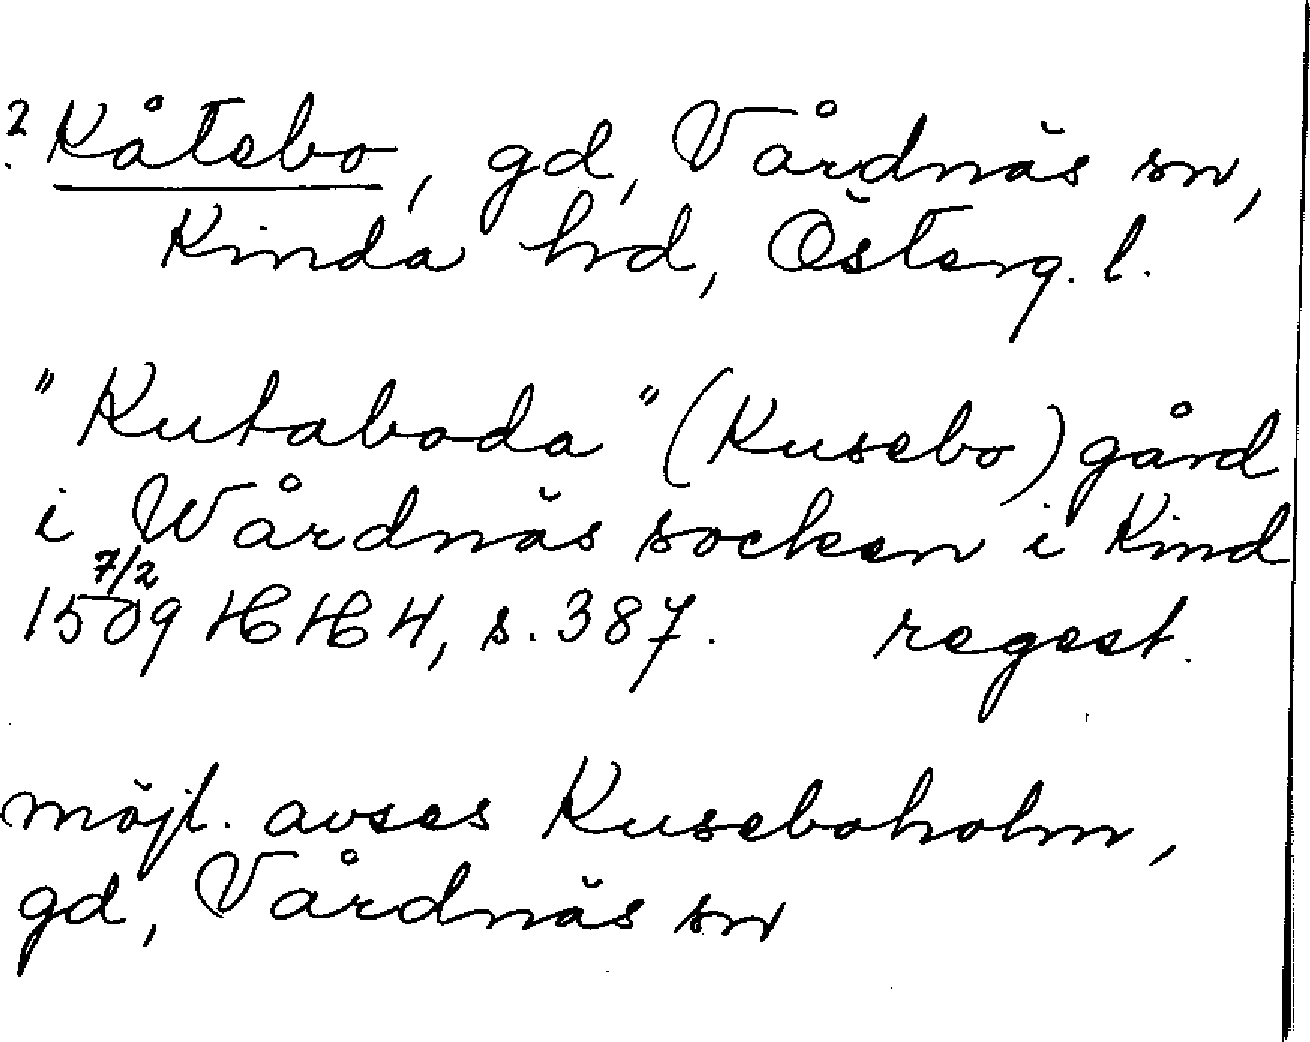 ? Kåtebo, gd, Vårdnäs sn,
Kinda hd, Österg. l.
"Kutaboda" (Kusebo) gård
i Wårdnäs socken i Kind
7/2
1509 HH 4, s. 387. regest.
möjl. avses Kuseboholm,
gd, Vårdnäs sn